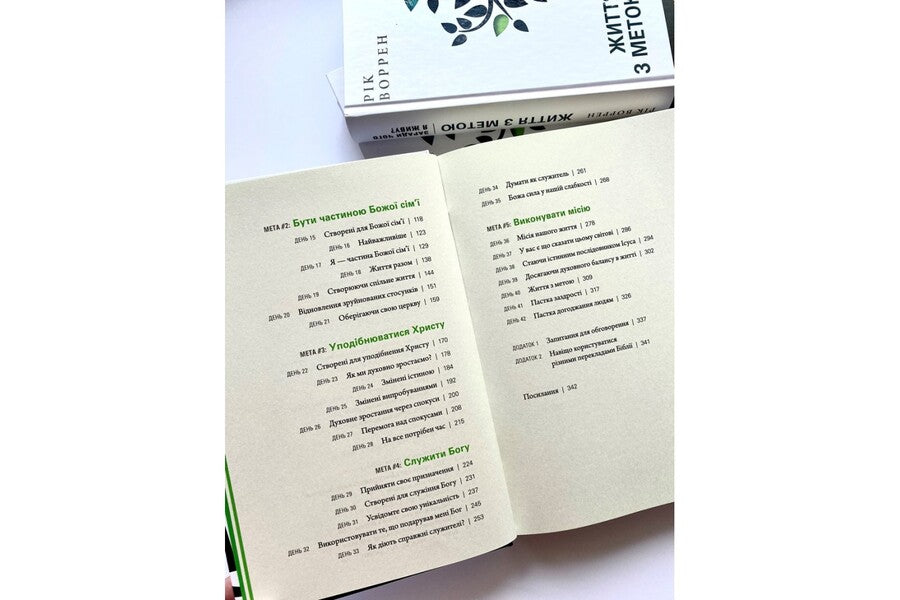 РІК
ВОРРЕН
ЖИТТЯ
З МЕТОЮ
РІК ВОРРЕН
ЖИТТЯ З МЕТОЮ
ЗАРАДИ ЧОГО
Я ЖИВУ?
МЕТА #2: Бути частиною Божої сім’ї
ДЕНЬ 15 Створені для Божої сім’ї | 118
ДЕНЬ 16 Найважливіше | 123
ДЕНЬ 17 Я — частина Божої сім’ї | 129
ДЕНЬ 18 Життя разом | 136
ДЕНЬ 19 Створюючи спільне життя | 144
ДЕНЬ 20 Відновлення зруйнованих стосунків | 151
ДЕНЬ 21 Оберігаючи свою церкву | 159
МЕТА #3: Уподібнюватися Христу
ДЕНЬ 22 Створені для уподібнення Христу | 170
ДЕНЬ 23 Як ми духовно зростаємо? | 178
ДЕНЬ 24 Змінені істиною | 184
ДЕНЬ 25 Змінені випробуваннями | 192
ДЕНЬ 26 Духовне зростання через спокуси | 200
ДЕНЬ 27 Перемога над спокусами | 208
ДЕНЬ 28 На все потрібен час | 215
МЕТА #4: Служити Богу
ДЕНЬ 29 Прийняти своє призначення | 224
ДЕНЬ 30 Створені для служіння Богу | 231
ДЕНЬ 31 Усвідомте свою унікальність | 237
ДЕНЬ 32 Використовувати те, що подарував мені Бог | 245
ДЕНЬ 33 Як діють справжні служителі? | 253
ДЕНЬ 34 Думати як служитель | 261
ДЕНЬ 35 Божа сила у нашій слабкості | 268
МЕТА #5: Виконувати місію
ДЕНЬ 36 Місія нашого життя | 278
ДЕНЬ 37 У вас є що сказати цьому світові | 286
ДЕНЬ 38 Стаючи істинним послідовником Ісуса | 294
ДЕНЬ 39 Досягаючи духовного балансу в житті | 302
ДЕНЬ 40 Життя з метою | 309
ДЕНЬ 41 Пастка заздрості | 317
ДЕНЬ 42 Пастка догоджання людям | 326
ДОДАТОК 1 Запитання для обговорення | 337
ДОДАТОК 2 Навіщо користуватися
різними перекладами Біблії | 341
Посилання | 342